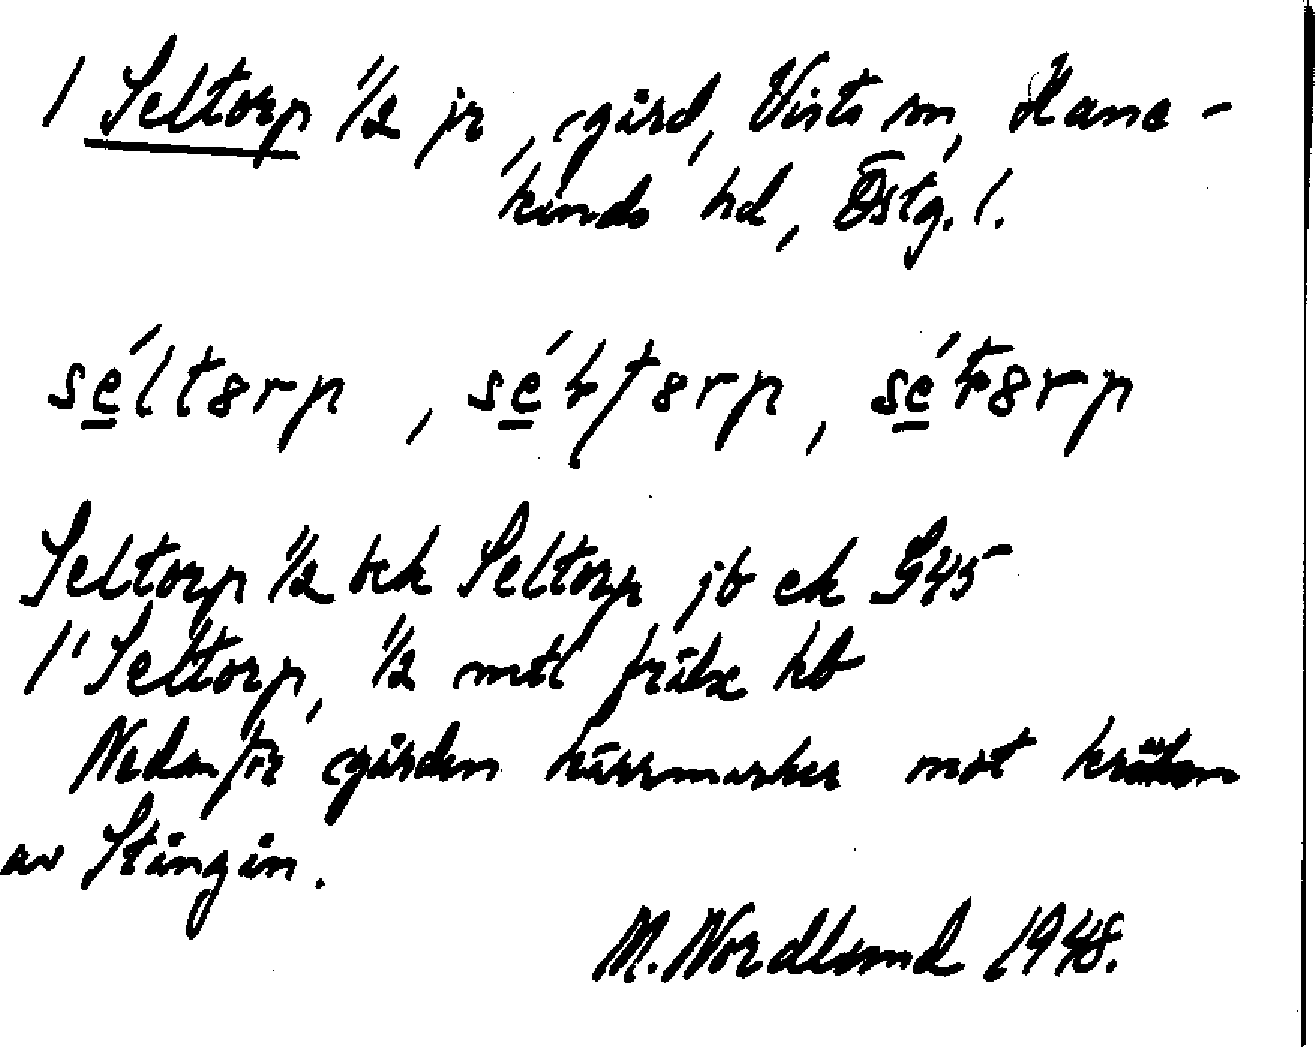 1 Seltorp 1/2 jr, gård, Vists sn, Hane-
kinds hd, Östg. l.
Seltorp 1/2 bck Seltorp jb ek G45
1' Seltorp, 1/2 mtl frälse hb
Nedanför gården kärrmarker mot kröken
av Stångån.
M. Nordlund 1948.